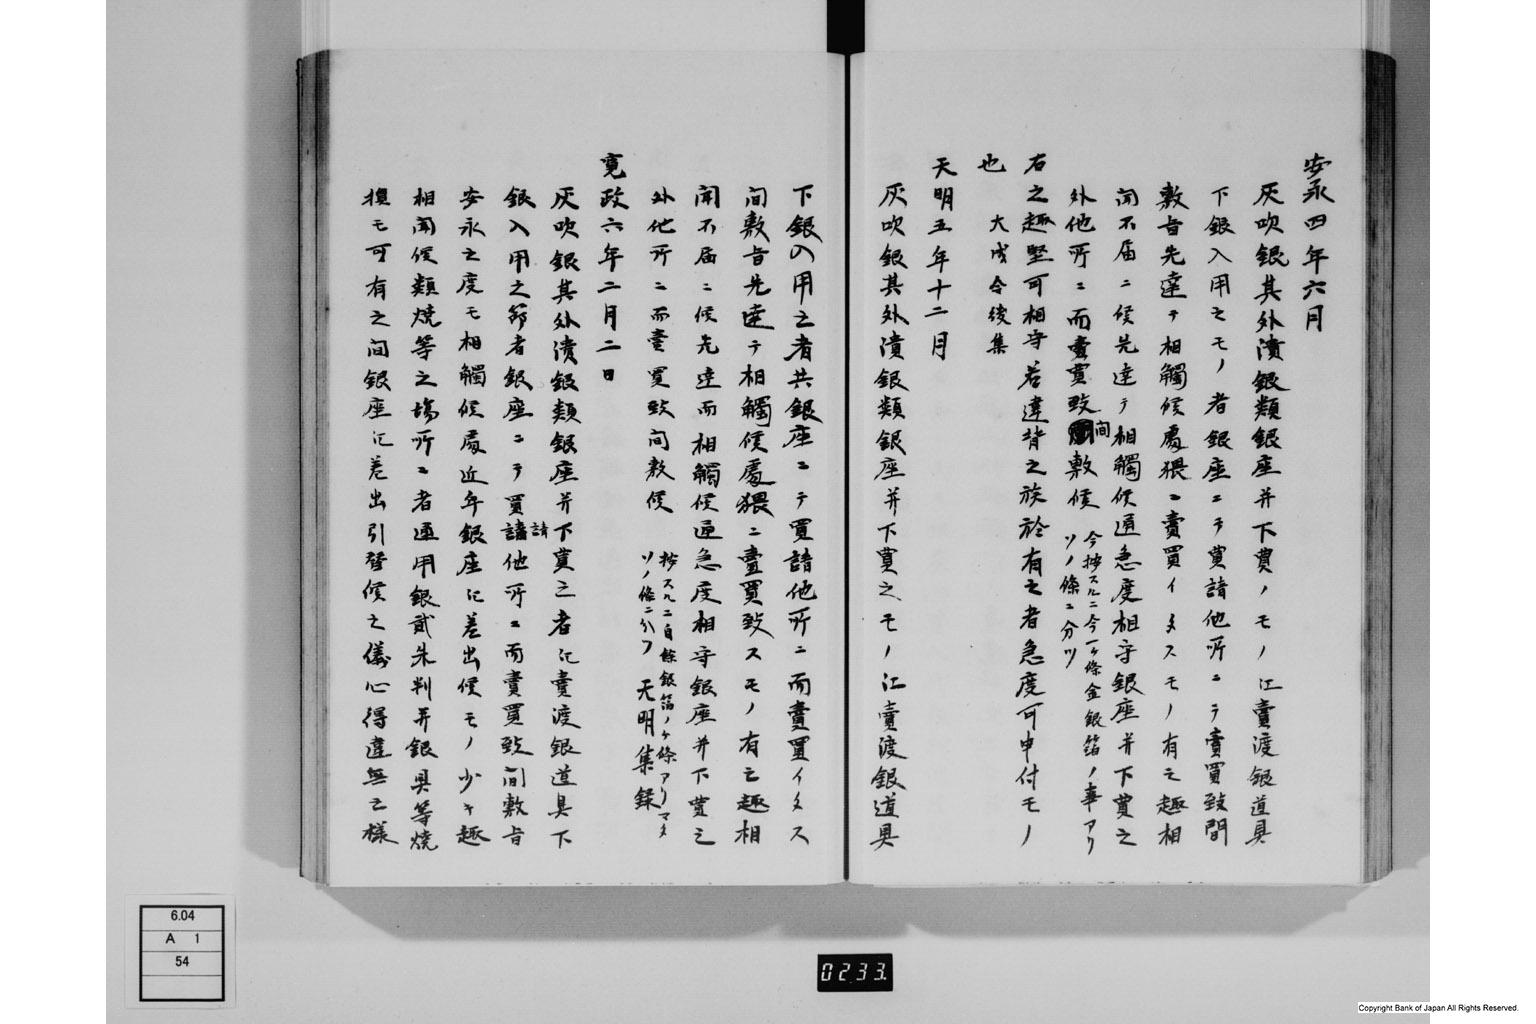 安永四年六月
灰吹銀其外潰銀類銀座并下買ノモノ江賣渡銀道具
下銀入用之モノ者銀座ニテ買請他所ニテ賣買致間
敷旨先達テ相觸候處猥ニ賣買イタスモノ有之趣相
聞不届ニ候先達テ相觸候通急度相守銀座并下買之
外他所ニ而賣買致間敷候 今按スルニ今一ケ條金銀箔ノ事アリ
ソノ條ニ分ツ
右之趣堅可相守若違背之族於有之者急度可申付モノ
也 大成令後集
天明五年十二月
灰吹銀其外潰銀類銀座并下買之モノ江賣渡銀道具
下銀入用之者共銀座ニテ買請他所ニ而賣買イタス
間敷旨先達テ相觸候處猥ニ賣買致スモノ有之趣相
聞不届ニ候先達而相觸候通急度相守銀座并下買之
外他所ニ而賣買致間敷候 按スルニ自餘銀箔ノケ條アリマタ
ソノ條ニ分ツ 天明集録
寛政六年二月二日
灰吹銀其外潰銀類銀座并下買之者江賣渡銀道具下
銀入用之節者銀座ニテ買請他所ニ而賣買致間敷旨
安永之度モ相觸候處近年銀座江差出候モノ少キ趣
相聞候類焼等之場所ニ者通用銀貳朱判并銀具等焼
損モ可有之間銀座江差出引替候之儀心得違無之様
6.04
A 1
54
0233.
Copyright Bank of Japan All Rights Reserved.